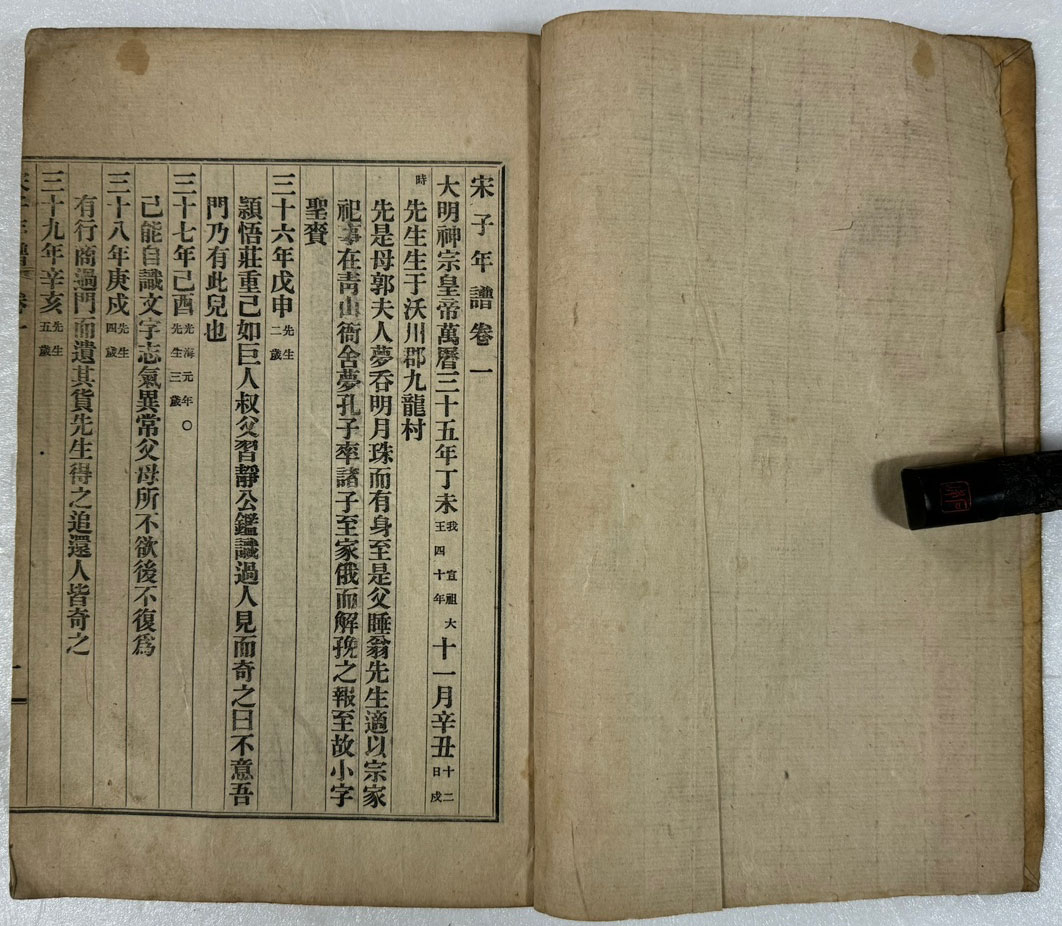 宋子年譜卷一
大明神宗皇帝萬曆三十五年丁未我宣祖大王四十年十一月辛丑十二日戌
時先生生于沃川郡九龍村
先是母郭夫人夢呑明月珠而有身至是父睡翁先生適以宗家
祀事在靑山衙舍夢孔子率諸子至家俄而解㝃之報至故小字
聖賚
三十六年戊申先生二歲
穎悟莊重已如巨人叔父習靜公鑑識過人見而奇之曰不意吾
門乃有此兒也
三十七年己酉光海元年○先生三歲
已能自識文字志氣異常父母所不欲後不復爲
三十八年庚戌先生四歲
有行商過門而遺其貨先生得之追還人皆奇之
三十九年辛亥先生五歲
宋子年譜 卷一 一